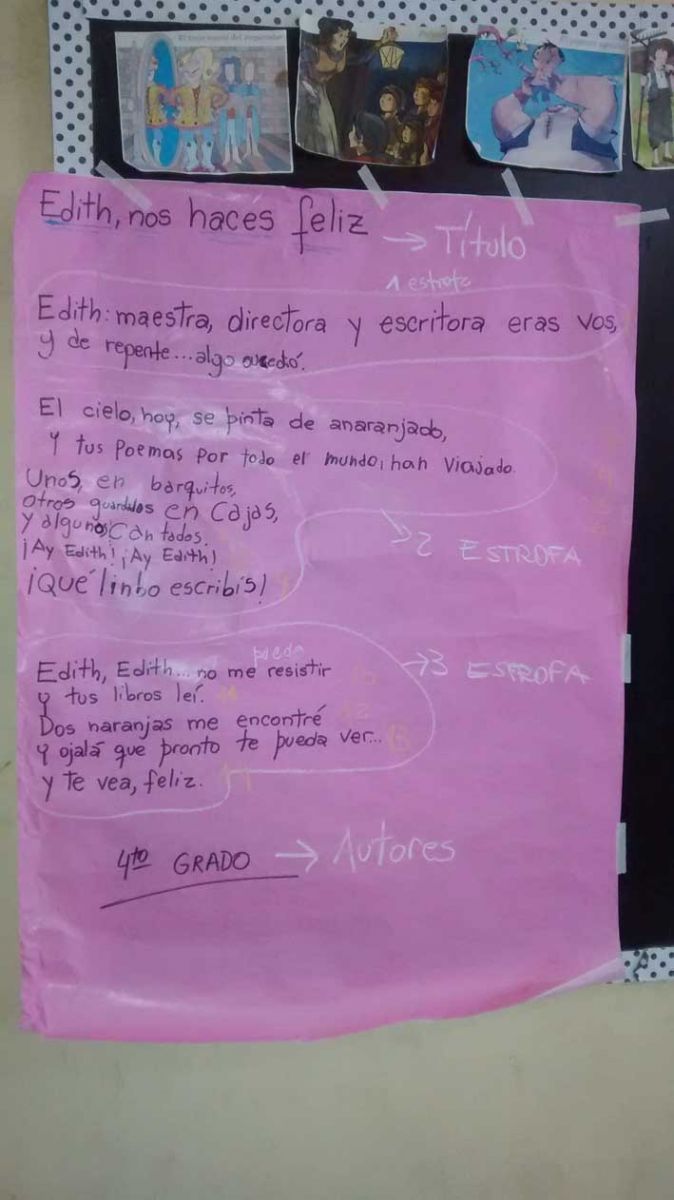 Edith, nos haces feliz → Título
1 estrofa
Edith: maestra, directora y escritora eras vos,
y de repente... algo sucedió.
El cielo, hoy, se pinta de anaranjado,
Y tus poemas por todo el mundo, han viajado.
Unos, en barquitos,
otros guardalos en cajas,
y algunos cantados.
¡Ay Edith! ¡Ay Edith!
¡QUÉ linbo escribís!
→ 2 ESTROFA
Edith, Edith... no me puedo resistir
y tus libros leí.
→ 3 ESTROFA
Dos naranjas me encontré
y ojalá que pronto te pueda ver...
y te vea, feliz.
4to GRADO → Autores